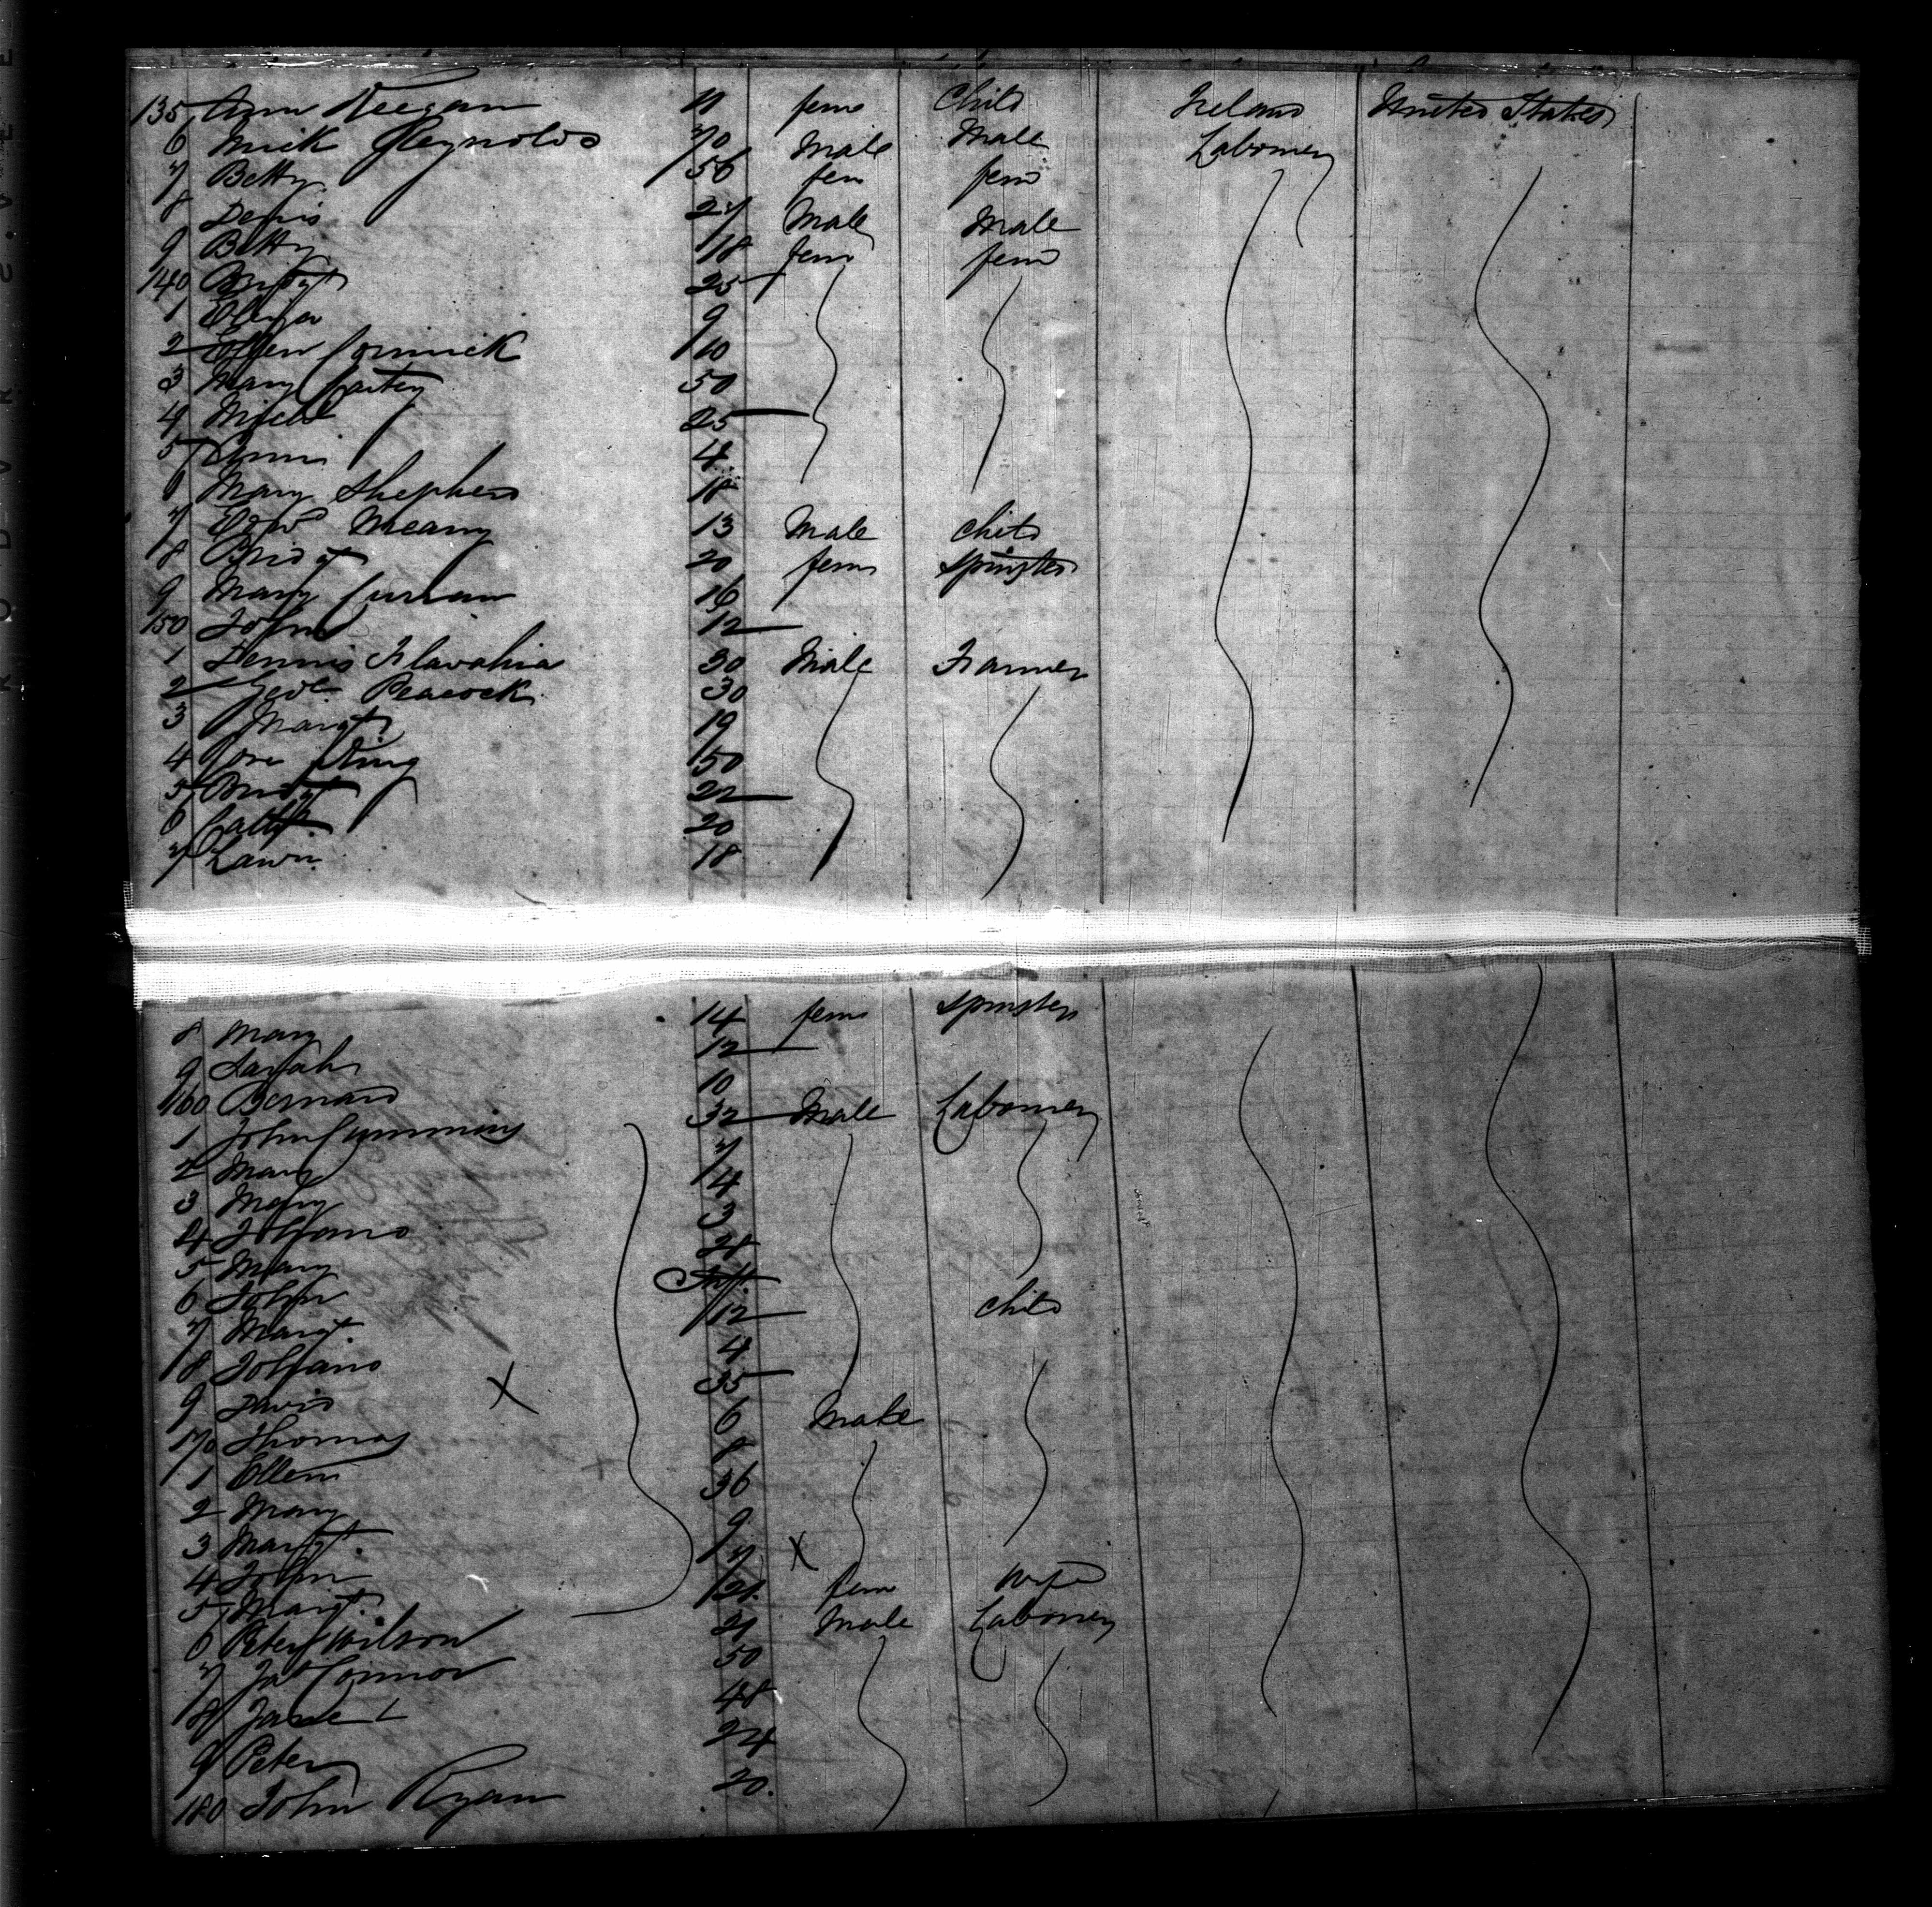 135 Ann Keegan 11 fem Child Ireland United States
6 Mick Reynolds 70 Male Male Labourer
7 Betty 56 fem fem
8 Denis 27 Male Male
9 Betty 18 fem fem
140 Bridgt 25
1 Eliza 9
2 Ellen Cormick 10
3 Mary Cartey 50
4 25
5 Ann 4
6 Mary Shepherd 18
7 Edwd Meany 13 Male Child
8 Bridgt 20 fem Spinster
9 Mary Curran 16
150 John 12
1 Dennis 30 Male Farmer
2 Geoe Peacock 30
3 Margt 19
4 King 50
5 Bridgt 22
6 Cathe 20
7 Lawn 18
8 Mary 14 fem Spinster
9 Sarah 12
160 Bernard 10
1 John Cummins 32 Male Labourer
2 Mary 7
3 Mary 4
4 Johano 3
5 Mary 28
6 John Inft
7 Margt 12 Child
8 Johano 4
9 David 35
170 Thomas 6 Male
1 Ellen 8
2 Mary 36
3 Margt 9
4 John 7
5 Margt 21 fem Wife
6 Peter Wilson 21 Male Labourer
7 Jas Connor 50
8 Jane 48
9 Peter 24
180 John Ryan 20